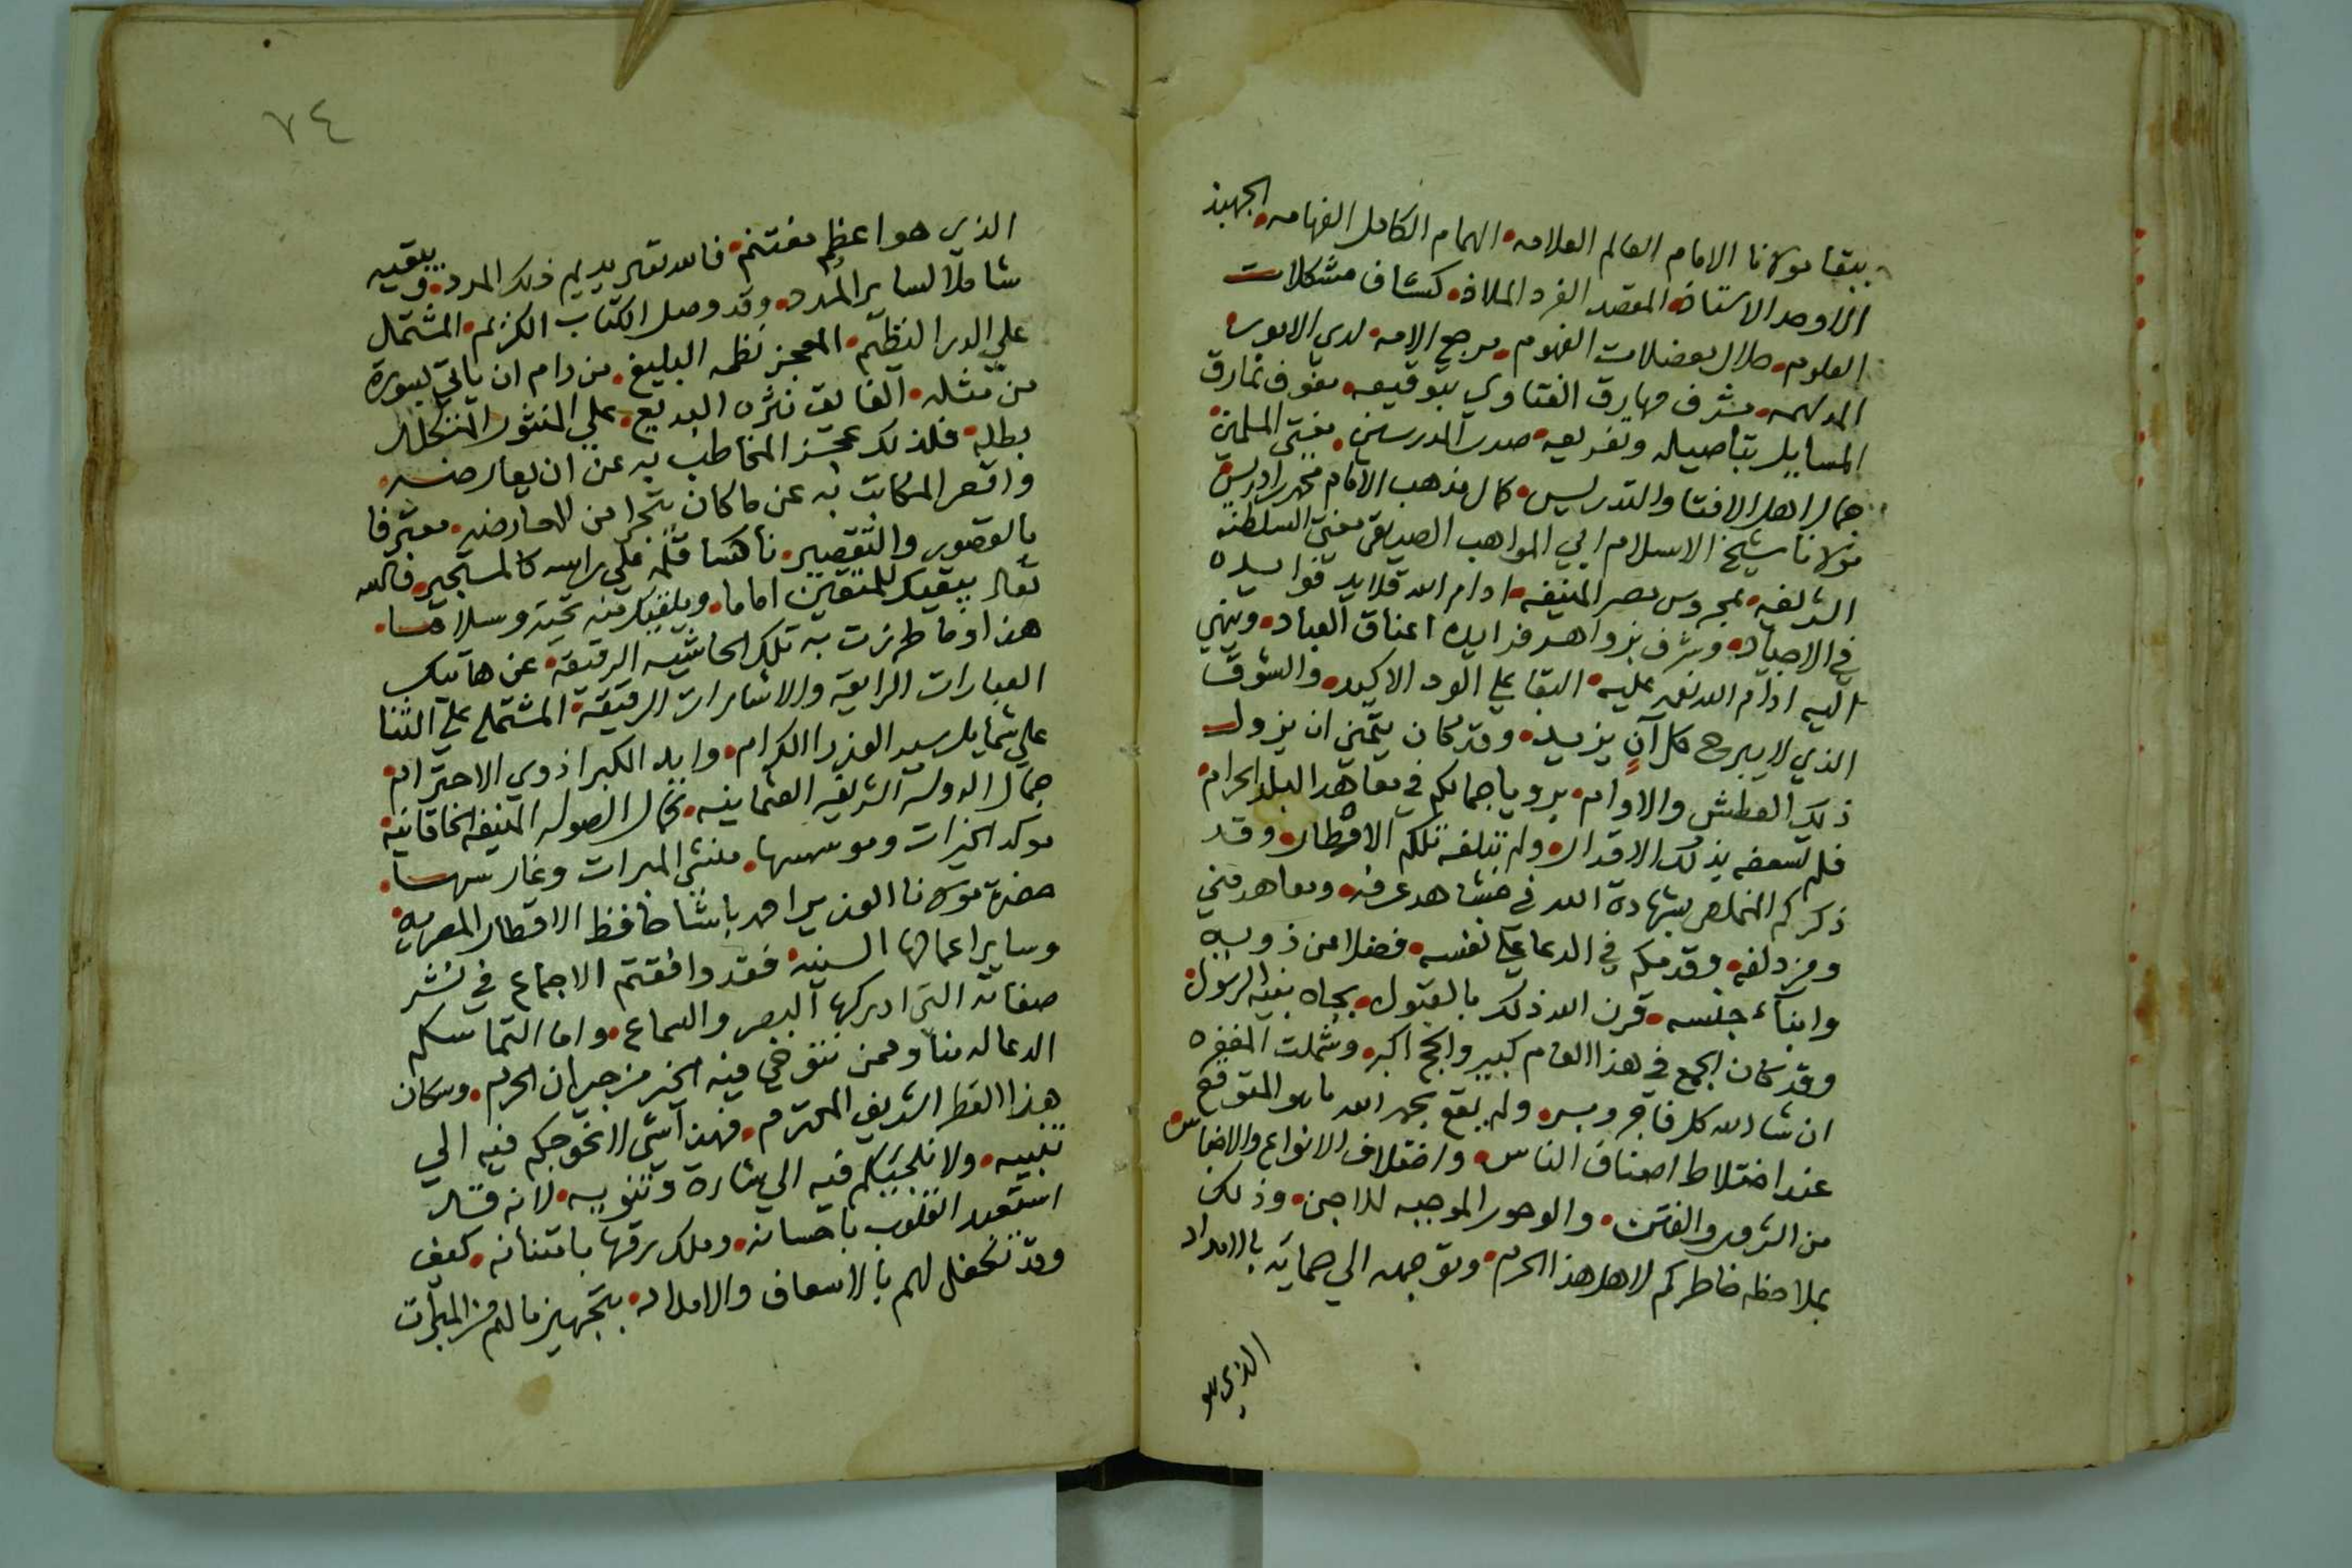 ببقا مولانا الامام العالم العلامه الهمام الكامل الفهامه الجهبذ
الاوحد الاستاذ المقصد الفرد الملاذ كشاف مشكلات
العلوم حلال معضلات الفهوم مرجع الامه لدي الامور
المدلهمه مشرف مهارق الفتاوي بتوقيعه مفوف نمارق
المسايل بتاصيله وتفريعه صدر المدرسين مفتي المسلمين
جمال اهل الافتا والتدريس كمال مذهب الامام محمد بن ادريس
مولانا شيخ الاسلام ابي المواهب الصديقي مفتي السلطنه
الشريفه بمحروس مصر المنيفه ادام الله قلايد فوايده
في الاجياد وشرف بزواهر فرايده اعناق العباد وينهي
اليه ادام الله نعمه عليه البقا علي الود الاكيد والشوق
الذي لا يبرح كل آنٍ يزيد وقد كان يتمني ان يزول
ذلك العطش والاوام برويا جمالكم في معاهد البلد الحرام
فلم تسعفه بذلك الاقدار ولم تبلغه تلكم الاقطار وقد
ذكركم المخلص بشهادة الله في مشاهد عرفه ومعاهد مني
ومزدلفه وقدمكم في الدعا علي نفسه فضلا عن ذويه
وابناء جنسه قرن الله ذلك بالقبول بجاه نبيه الرسول
وقد كان الجمع في هذا العام كبير والحج اكبر وشملت المغفره
ان شا الله كل فاجر وبر ولم يقع بحمد الله ما هو المتوقع
عند اختلاط اصناف الناس واختلاف الانواع والاجناس
من الشرور والفتن والوحور الموجبه للاحن وذلك
بملاحظه خاطركم لاهل هذا الحرم وتوجهه الي حمايته بالامداد
الذي هو
٧٤
الذي هو اعظم مغتنم فالله تعالي يديم ذلك المدد ويبقيه
شاملا لساير المدد وقد وصل الكتاب الكريم المشتمل
علي الدر النظيم المعجز نظمه البليغ من رام ان ياتي بسورة
من مثله الفايق نثره البديع علي المنثور المتخلل
بطله فلذلك عجز المخاطب به عن ان يعارضه
واقصر المكاتب به عن ما كان يتجرا من المعارضه معترفا
بالقصور والتقصير ناكسا قلمه علي راسه كالمستجير فالله
تعالي يبقيك للمتقين اماما ويلقيك منه تحية وسلاما
هذا وما طرزت به تلك الحاشيه الرقيقة عن هاتيك
العبارات الرايقة والاشارات الرقيقة المشتمله علي الثنا
علي شمايل سيد الوزرا الكرام وايد الكبرا ذوي الاحترام
جمال الدولة الشريفه العثمانيه كمال الصوله المنيفه الخاقانيه
موكد الخيرات وموسسها منشي المبرات وغارسها
حضرة مولانا الوزير احمد باشا حافظ الاقطار المصريه
وساير اعمالها السنيه فقد وافقتم الاجماع في نشر
صفاته التي ادركها البصر والسماع واما التماسكم
الدعا له منا وممن نتوخي فيه الخير من جيران الحرم وسكان
هذا القطر الشريف المحترم فهذا شي لا نحوجكم فيه الي
تنبيه ولا نلجيكم فيه الي اشارة وتنويه لانه قد
استعبد القلوب باحسانه وملك رقها بامتنانه كيف
وقد تكفل لهم بالاسعاف والامداد بتجهيز مالهم من المبرات